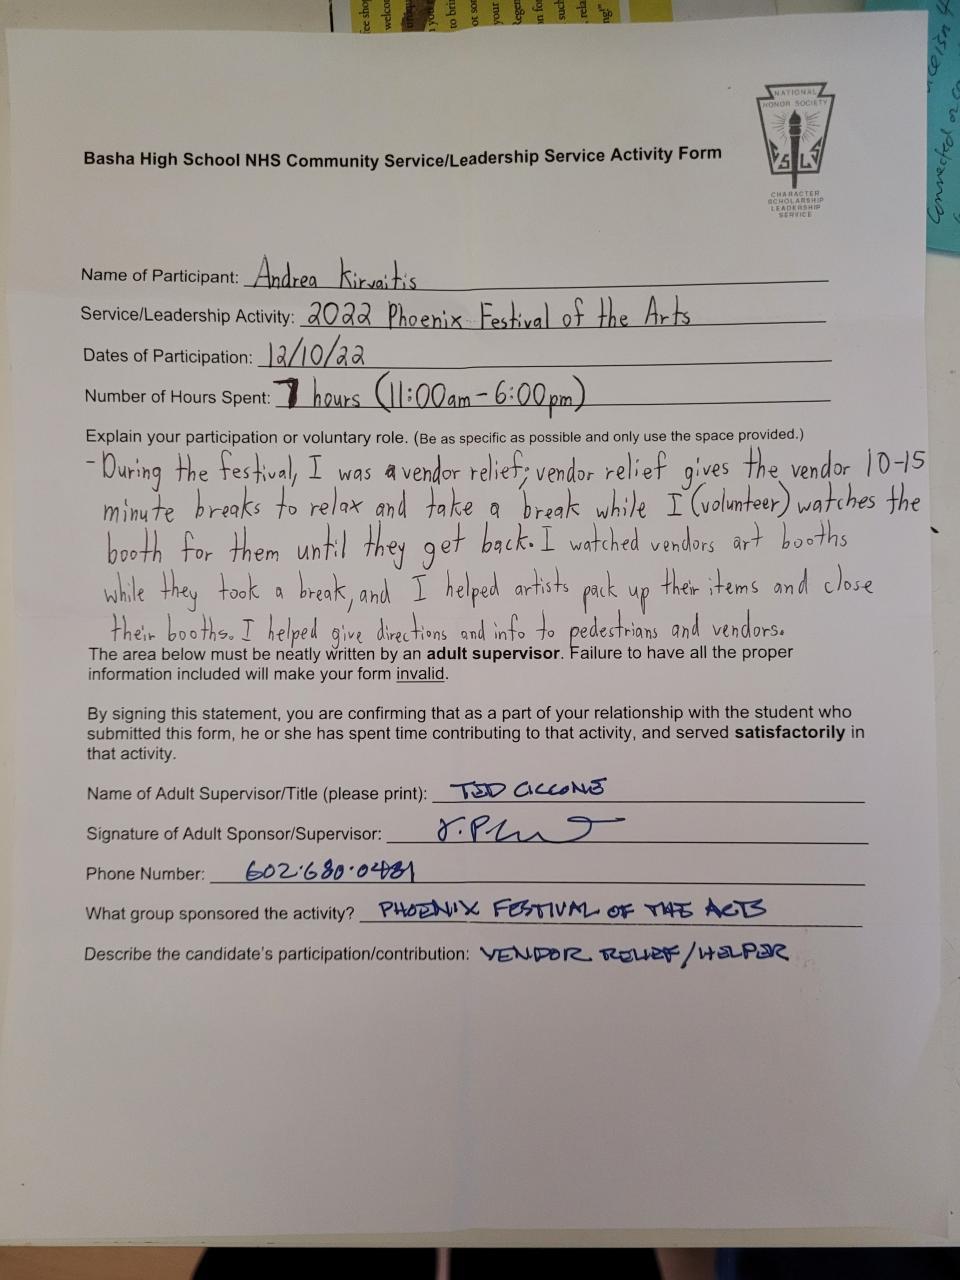 NATIONAL
HONOR SOCIETY
S L S
CHARACTER
SCHOLARSHIP
LEADERSHIP
SERVICE
Basha High School NHS Community Service/Leadership Service Activity Form
Name of Participant: Andrea Kirvaitis
Service/Leadership Activity: 2022 Phoenix Festival of the Arts
Dates of Participation: 12/10/22
Number of Hours Spent: 7 hours (11:00am - 6:00pm)
Explain your participation or voluntary role. (Be as specific as possible and only use the space provided.)
- During the festival, I was a vendor relief; vendor relief gives the vendor 10-15
minute breaks to relax and take a break while I (volunteer) watches the
booth for them until they get back. I watched vendors art booths
while they took a break, and I helped artists pack up their items and close
their booths. I helped give directions and info to pedestrians and vendors.
The area below must be neatly written by an adult supervisor. Failure to have all the proper
information included will make your form invalid.
By signing this statement, you are confirming that as a part of your relationship with the student who
submitted this form, he or she has spent time contributing to that activity, and served satisfactorily in
that activity.
Name of Adult Supervisor/Title (please print): TED CICCONE
Signature of Adult Sponsor/Supervisor:
Phone Number: 602·680·0481
What group sponsored the activity? PHOENIX FESTIVAL OF THE ARTS
Describe the candidate's participation/contribution: VENDOR RELIEF/HELPER